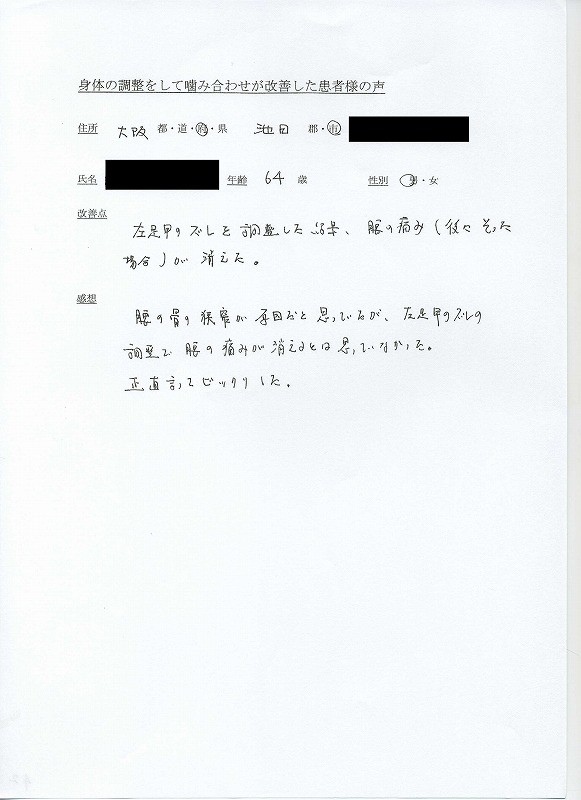 身体の調整をして噛み合わせが改善した患者様の声
住所 大阪 都・道・府・県 池田 郡・市
氏名 年齢 64 歳 性別 男・女
改善点
左足甲のズレを調整した結果、腰の痛み(後にそった
場合)が消えた。
感想
腰の骨の狭窄が原因だと思っているが、左足甲のズレの
調整で腰の痛みが消えるとは思っていなかった。
正直言ってビックリした。